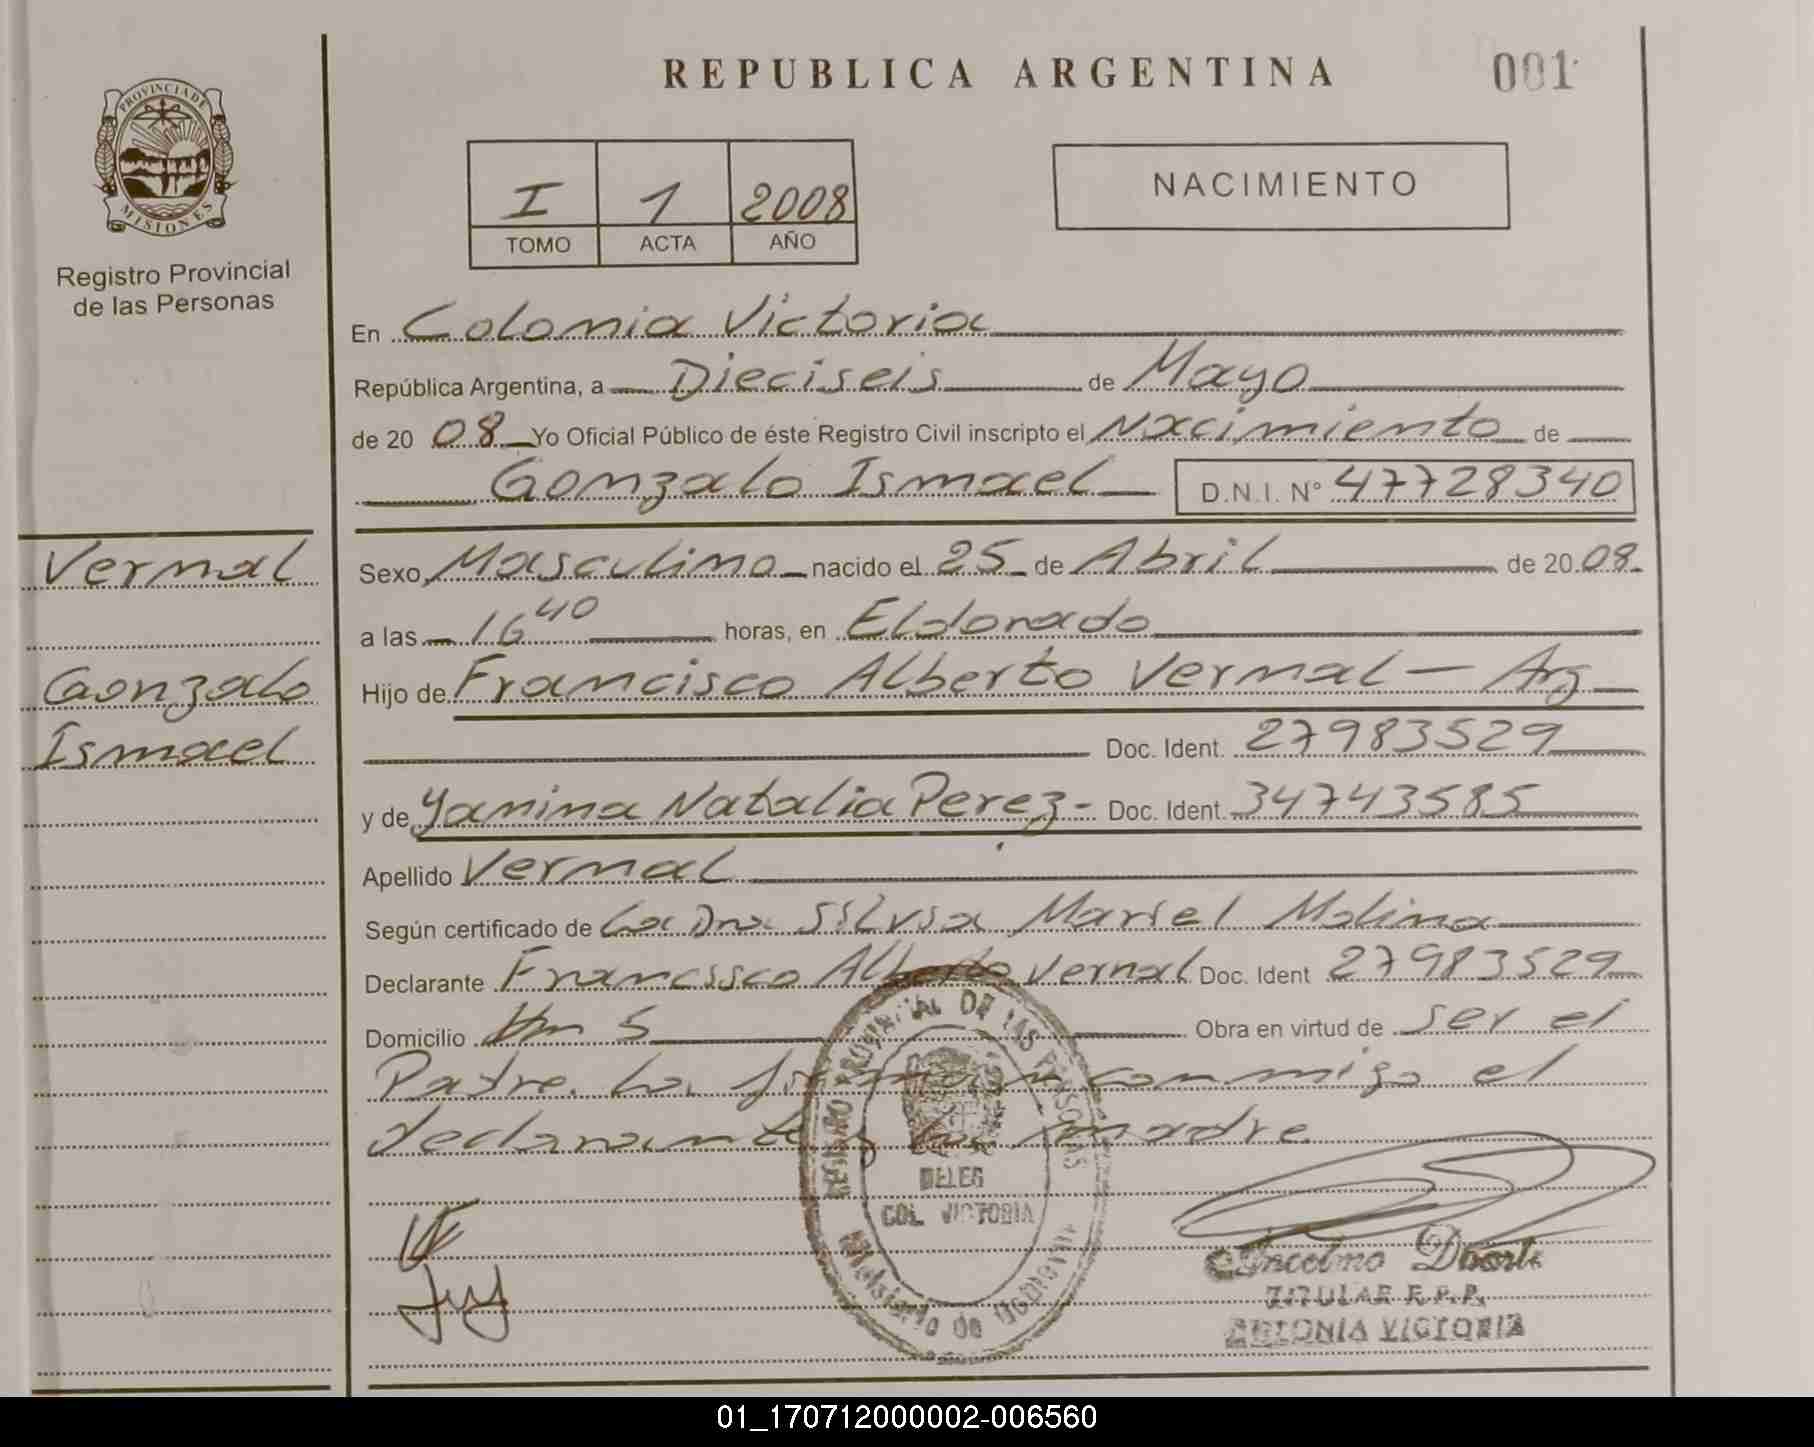 REPUBLICA ARGENTINA
001
PROVINCIA DE
MISIONES
Registro Provincial
de las Personas
I 1 2008
TOMO ACTA AÑO
NACIMIENTO
En Colonia Victoria
República Argentina, a Dieciseis de Mayo
de 20 08 Yo Oficial Público de éste Registro Civil inscripto el Nacimiento de
Gonzalo Ismael D.N.I. N° 47728340
Vernal
Gonzalo
Ismael
Sexo Masculino nacido el 25 de Abril de 20 08
a las 16 40 horas, en Eldorado
Hijo de Francisco Alberto Vernal - Arg
Doc. Ident. 27983529
y de Yanina Natalia Perez - Doc. Ident. 34743585
Apellido Vernal
Según certificado de La Dra Silvia Mariel Molina
Declarante Francisco Alberto Vernal Doc. Ident 27983529
Domicilio Km 5 Obra en virtud de ser el
Padre. La conmigo el
declarante y la madre
REGISTRO PROVINCIAL DE LAS PERSONAS
DELEG
COL. VICTORIA
Ministerio de
Duarte
TITULAR R.P.P.
COLONIA VICTORIA
01_170712000002-006560